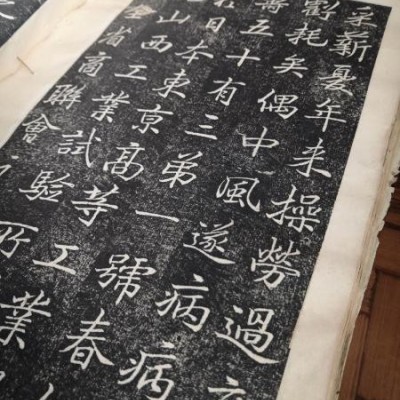 采薪夏年来操勞過
耗矣偶中風遂病病
壽五十有三弟一號春
在日本東京高等工業
山西工業試驗所
全省商聯會